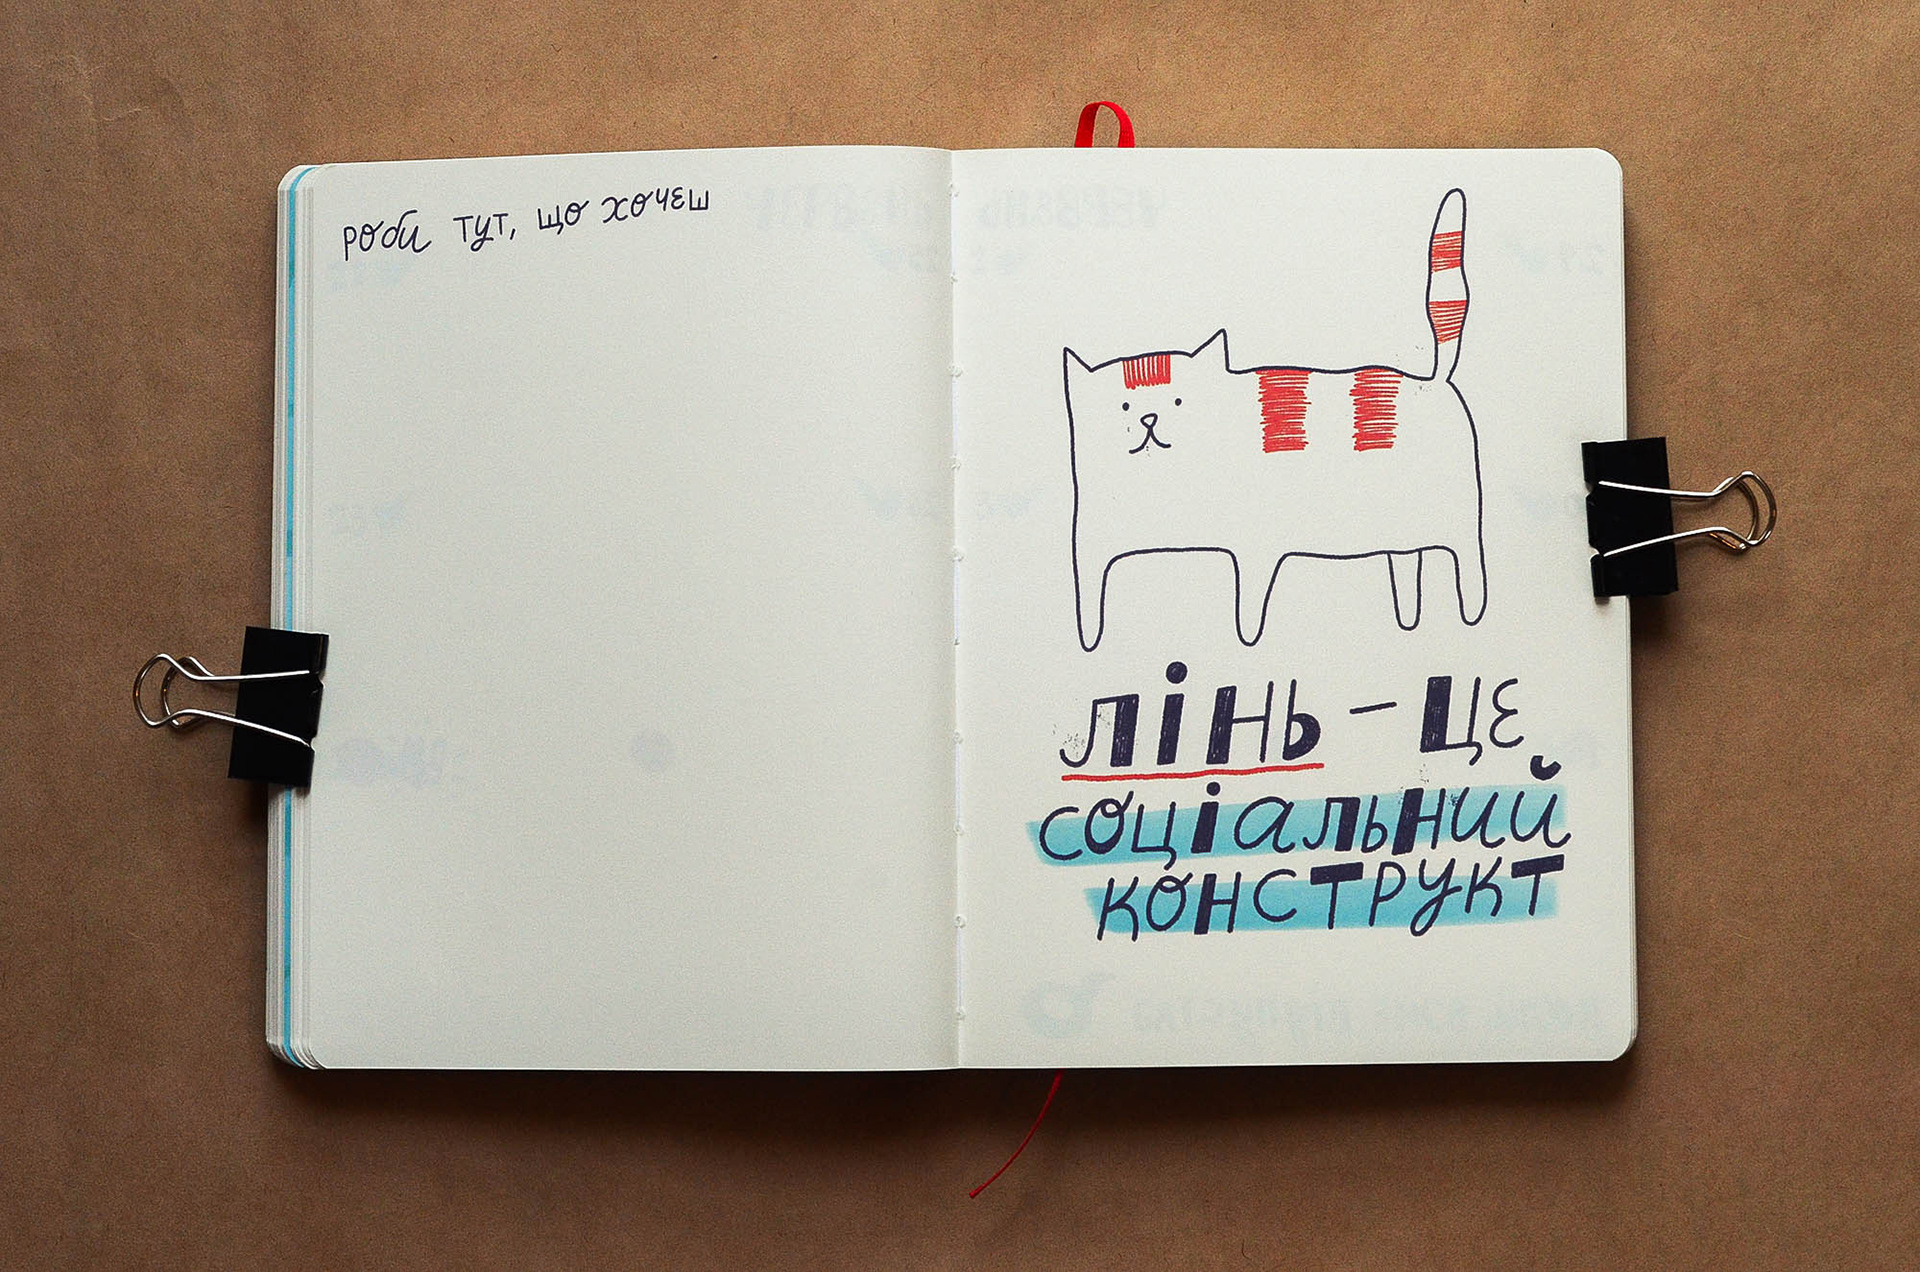 роби тут, що хочеш
лінь – це
соціальний
конструкт